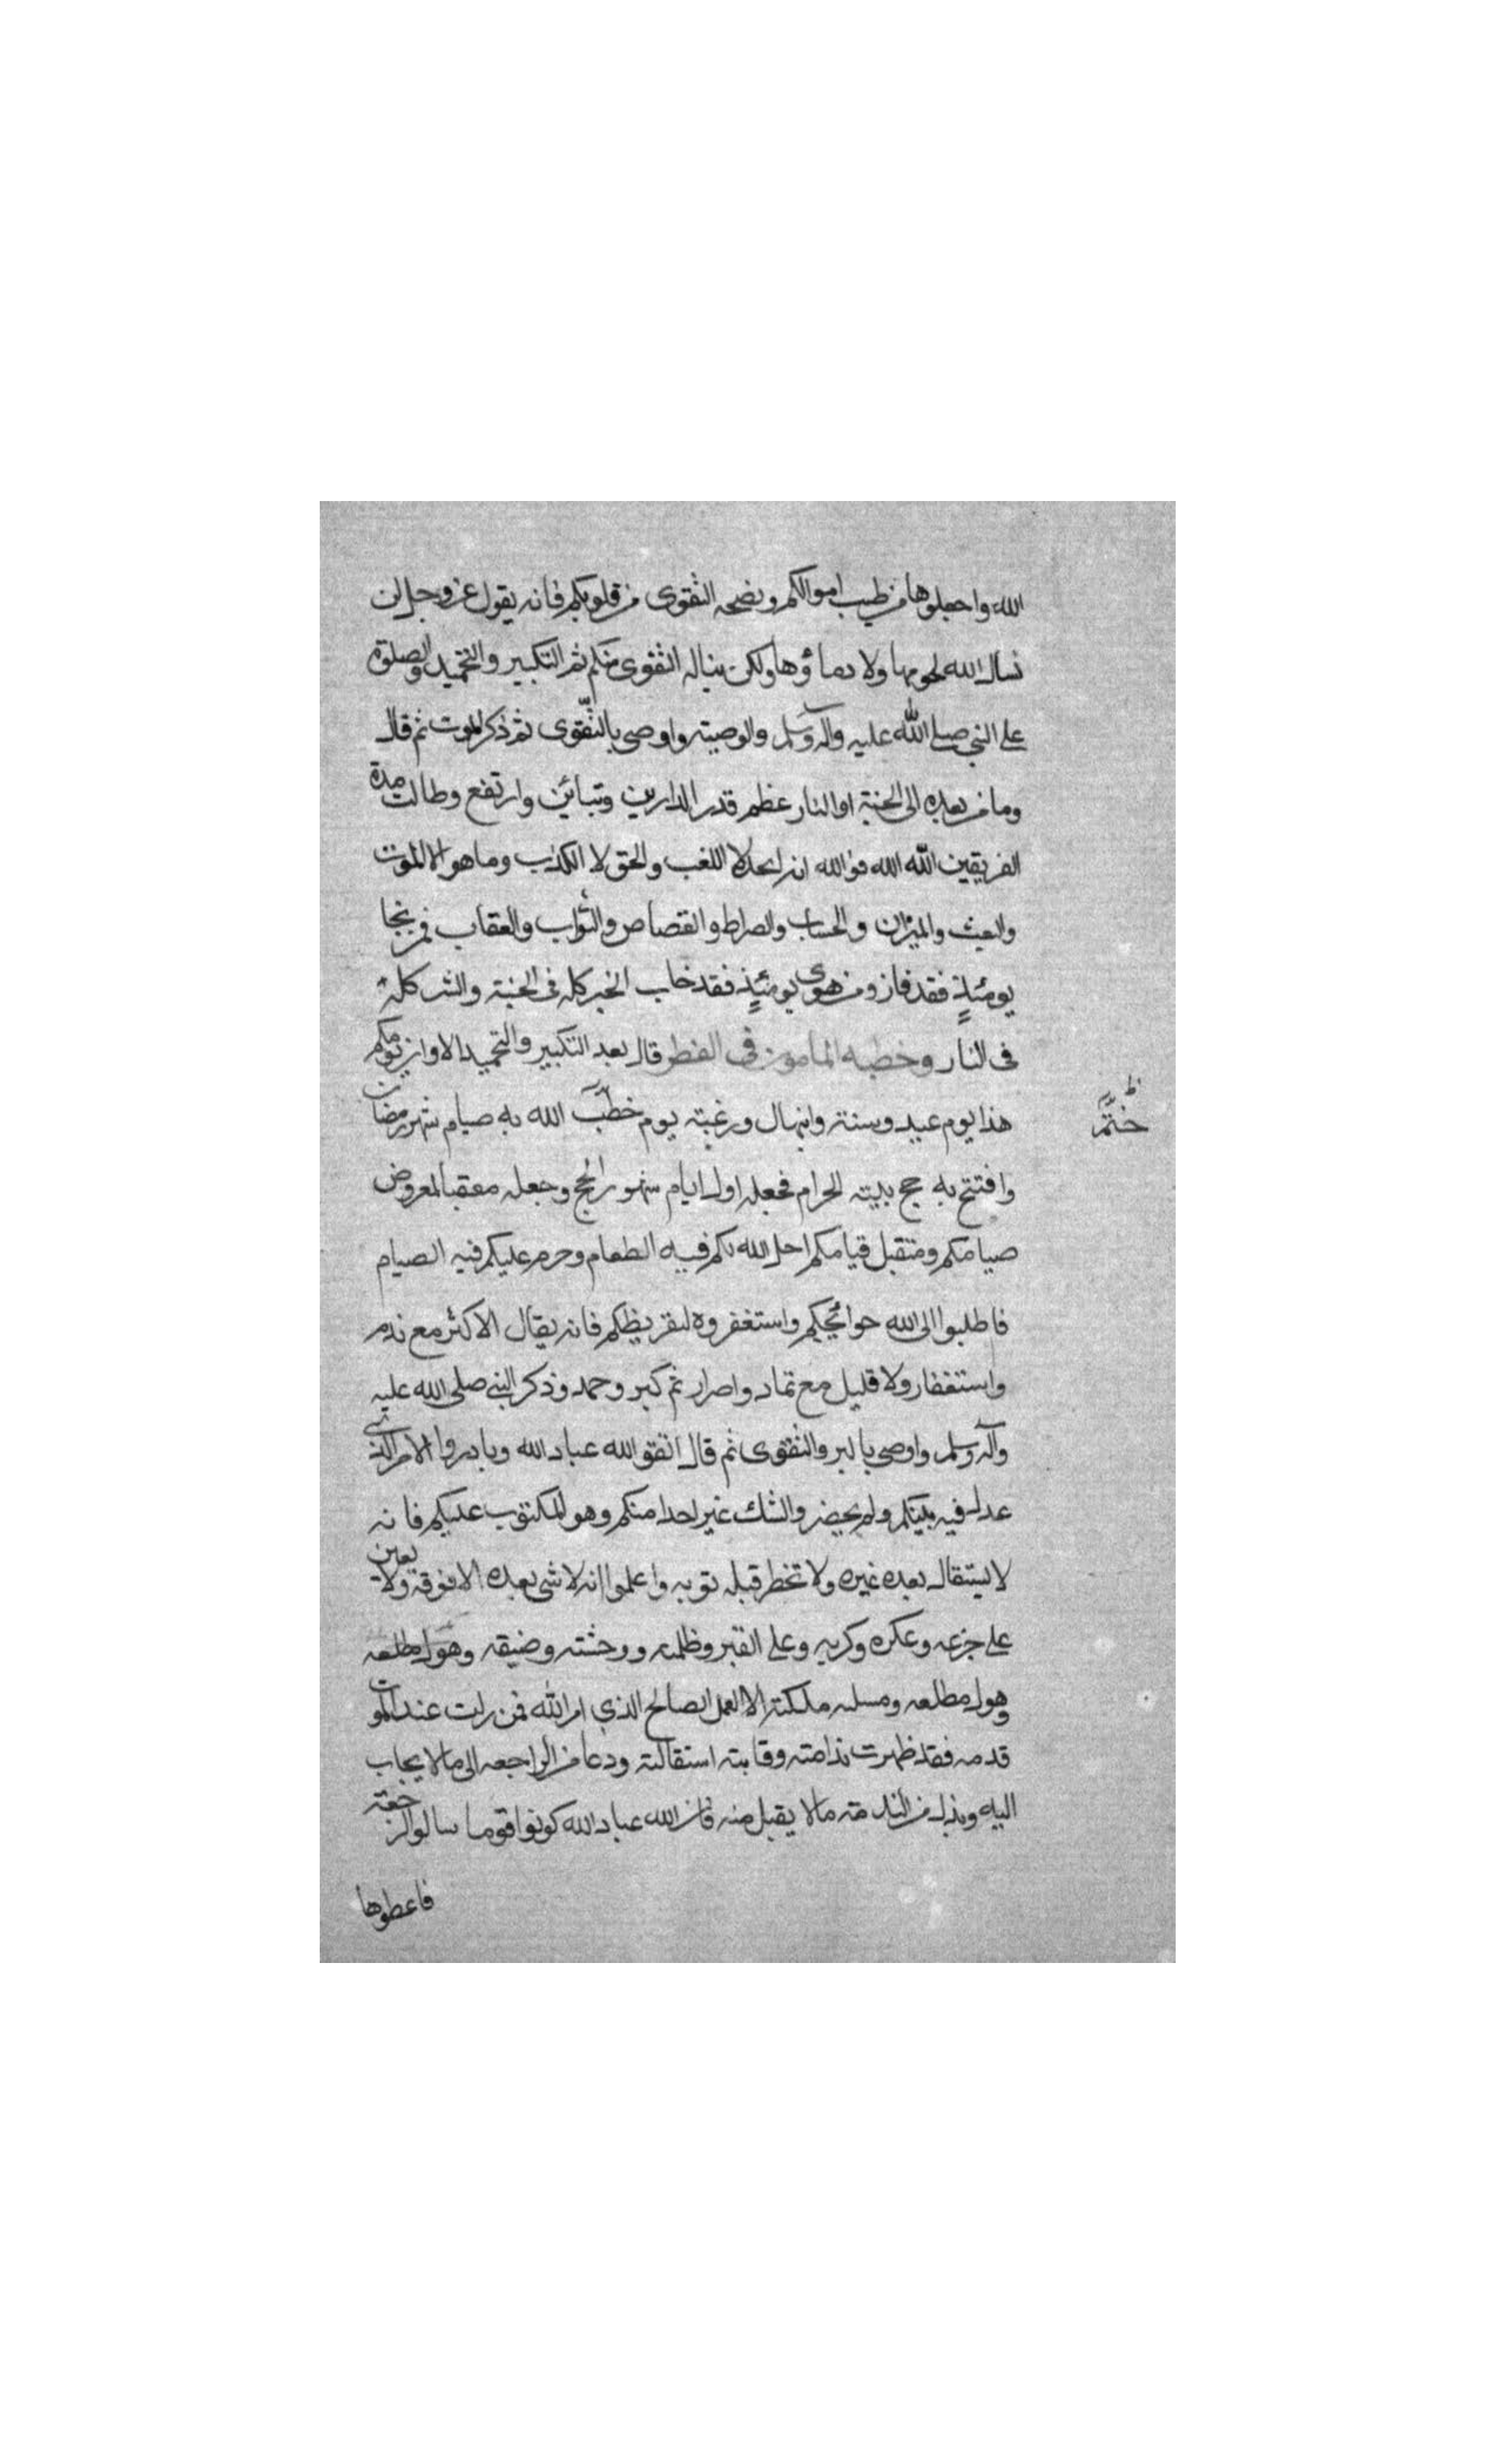 الله واجعلوها من طيب اموالكم وبضحه التقوى من قلوبكم فانه يقول عز وجل لن
نسال الله لحومها ولا دماؤها ولكن يناله التقوى منكم ثم التكبير والتحميد والصلوة
على النبي صلى الله عليه وآله وسلم والوصية واوصى بالتقوى ثم ذكر الموت ثم قال
وما من بعده الى الجنة او النار عظم قدر الدارين وتبائن وارتفع وطالت مدة
الفريقين الله الله فوالله انه الجد لا اللعب والحق لا الكذب وما هو الا الموت
والبعث والميزان والحساب والصراط والقصاص والثواب والعقاب فمن نجا
يومئذ فقد فاز ومن هوى يومئذ فقد خاب الخير كله في الجنة والشر كله
في النار وخطبه المامون في الفطر قال بعد التكبير والتحميد الا وان يومكم
هذا يوم عيد وسنة وابتهال ورغبة يوم خطب الله به صيام شهر رمضان
ختم
وافتتح به حج بيته الحرام فجعله اول ايام شهور الحج وجعله معقبا لمعروض
صيامكم ومتقبل قيامكم احل الله لكم فيه الطعام وحرم عليكم فيه الصيام
فاطلبوا الى الله حوائجكم واستغفروه لتفريطكم فانه يقال الاكثر مع ندم
واستغفار ولا قليل مع تماد واصرار ثم كبر وحمد وذكر النبي صلى الله عليه
وآله وسلم واوصى بالبر والتقوى ثم قال اتقو الله عباد الله وبادروا الامر الذي
عدل فيه بينكم ولم يحضر والشك غير لحدا منكم وهو المكتوب عليكم فانه
لا يستقال بعده غيره ولا تخطر قبله توبه واعلموا انه لا شي بعده الا فوقه ولا يعين
على جزعه وعكره وكربه وعلى القبر وظلمته ووحشته وضيقه وهول مطلعه
وهول مطلعه ومسله ملكته الا العمل الصالح الذي امر الله فمن زلت عند الموت
قدمه فقد ظهرت ندامته وفايته استقالته ودعا من الراجعه الى ما لا يجاب
اليه وبذل من الندمة ما لا يقبل منه فان الله عباد الله كونوا قوما سالوا الرجعة
فاعطوها